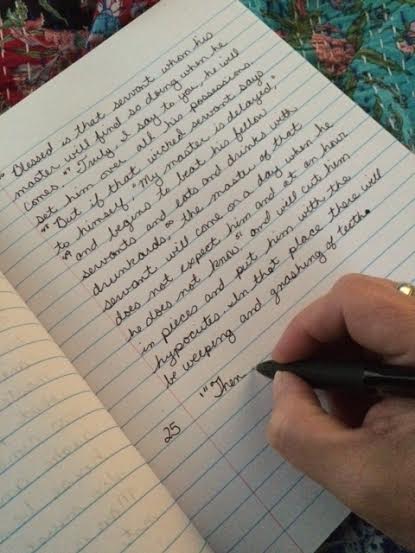 "Blessed is that servant whom his
master will find so doing when he
comes. "Truly, I say to you, he will
set him over all his possessions.
"But if that wicked servant says
to himself, 'My master is delayed,'
and begins to beat his fellow
servants and eats and drinks with
drunkards, the master of that
servant will come on a day when he
does not expect him and at an hour
he does not know and will cut him
in pieces and put him with the
hypocrites. In that place there will
be weeping and gnashing of teeth.
25 "Then